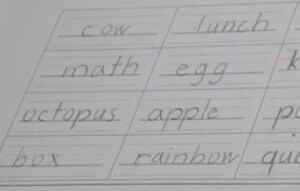 cow lunch
math egg
octopus apple
box rainbow